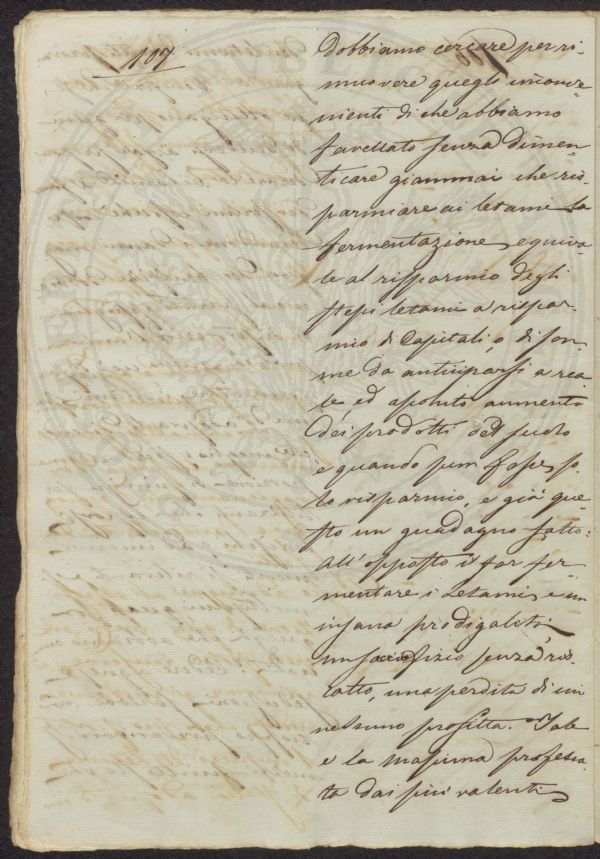 107
Dobbiamo cercare per ri-
muovere quegli inconve-
nienti di che abbiamo
favellato senza dimen-
ticare giammai che ris-
parmiare ai letami la
fermentazione equiva-
le al risparmio degli
stessi letami a rispar-
mio di Capitali, o di som-
me da anticiparsi a rea-
le, ed assoluto aumento
dei prodotti del suolo
e quando pur fosse so-
lo risparmio, e già que-
sto un guadagno fatto:
All'opposto il far fer-
mentare i Letami è un
insana prodigalità,
un sacrifizio senza ris-
catto, una perdita di un
nessuno profitto. Tale
è la massima professa-
ta dai più valenti